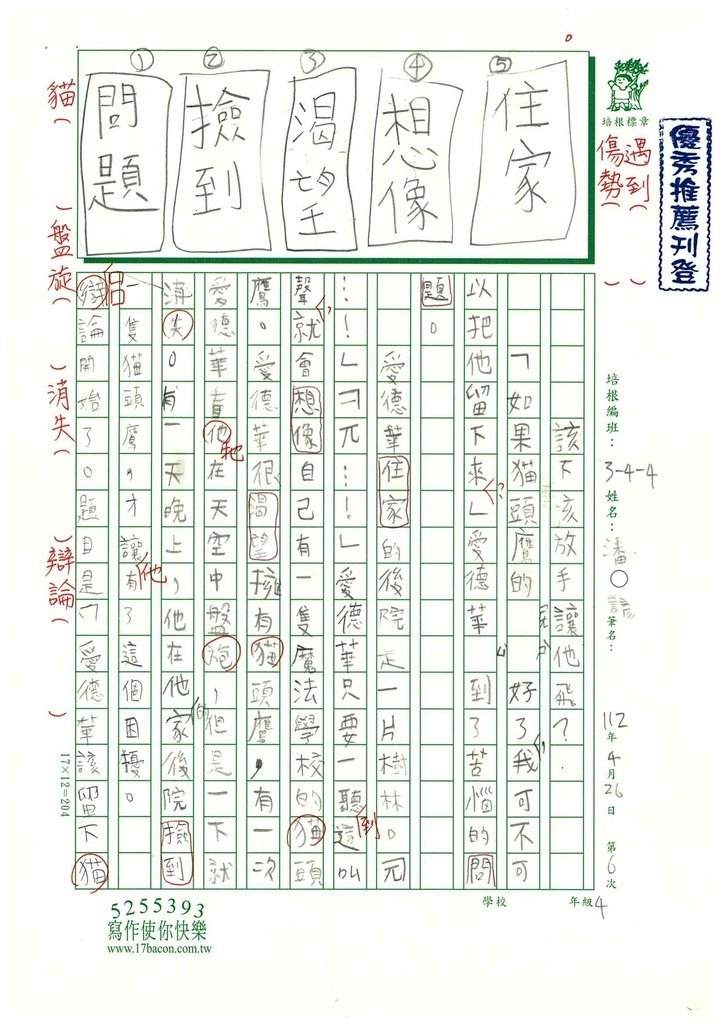 優秀推薦刊登
培根標章
遇到( )
傷勢( )
⑤
住家
④
想像
③
渴望
②
撿到
①
問題
貓( )
盤旋( )
消失( )
辯論( )
培根編班：3-4-4 姓名：潘○諺 筆名：
112年4月26日 第6次
該不該放手讓他飛？
「如果貓頭鷹的 好了，我可不可
以把他留下來？」愛德華 到了苦惱的問
題。
愛德華住家的後院是一片樹林。「兀
…！」「兀…！」愛德華只要一聽到這叫
聲，就會想像自己有一隻魔法學校的貓頭
鷹。愛德華很渴望擁有貓頭鷹，有一次
愛德華看他牠在天空中盤旋，但是一下就
消失。有一天晚上，他在他家的後院撿到
一隻貓頭鷹，才讓他有了這個困擾。
辯論開始了。題目是「愛德華該留下貓
17×12=204
學校 年級4
5255393
寫作使你快樂
www.17bacon.com.tw